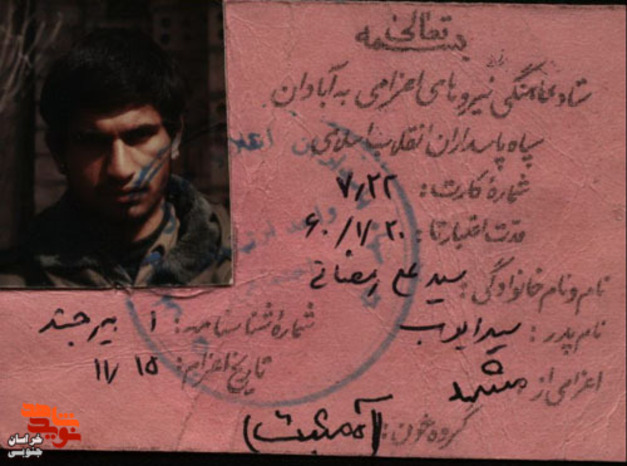 بسمه تعالی
ستاد هماهنگی نیروهای اعزامی به آبادان
سپاه پاسداران انقلاب اسلامی
شماره کارت: ۷,۲۲
مدت اعتبار تا: ۶۰/۱/۲۰
نام و نام خانوادگی: سید علی رمضانی
نام پدر: سید ایوب شماره شناسنامه: ۱ بیرجند
اعزامی از: مشهد تاریخ اعزام: ۱۱/۱۵
گروه خون: (A مثبت)
نوید شاهد
خراسان
جنوبی